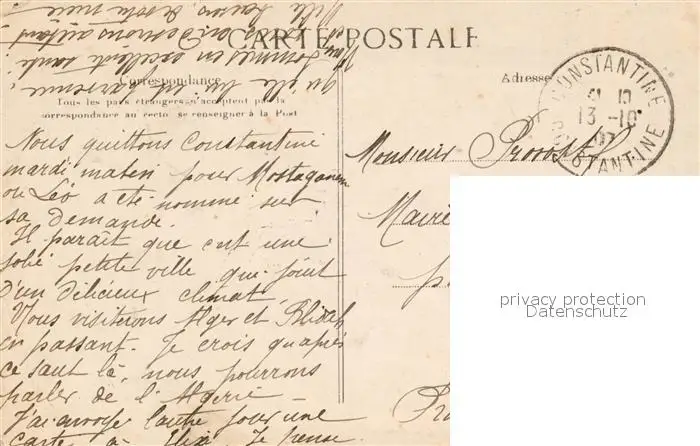 CARTE POSTALE
Correspondance
Tous les pays étrangers n'acceptent pas la
correspondance au recto se renseigner à la Post
Adresse
CONSTANTINE
13 -10
CONSTANTINE
Nous quittons Constantine
mardi matin pour Mostaganem
ou Léo a été nommé sur
sa demande.
Il paraît que c'est une
jolie petite ville qui jouit
d'un délicieux climat.
Nous visiterons Alger et Blidah
en passant. Je crois qu'après
ce saut là, nous pourrons
parler de l'Algérie –
J'ai envoyé l'autre jour une
carte à Je pense
qu'elle lui est parvenue.
Nous sommes en excellente santé
Monsieur Provost
Mairie
privacy protection
Datenschutz